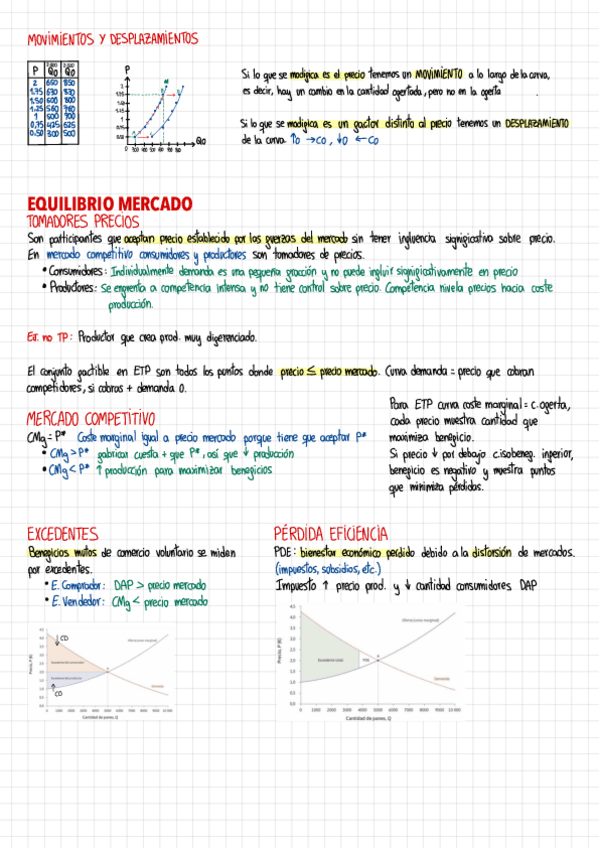 MOVIMIENTOS Y DESPLAZAMIENTOS
P Qo Qo
2 650 850
1.75 630 830
1.50 600 800
1.25 560 760
1 500 700
0.75 425 625
0.50 300 500
P
Qo
Si lo que se modifica es el precio tenemos un MOVIMIENTO a lo largo de la curva,
es decir, hay un cambio en la cantidad ofertada, pero no en la oferta.
Si lo que se modifica es un factor distinto al precio tenemos un DESPLAZAMIENTO
de la curva. ↑O →CO, ↓O ←CO
EQUILIBRIO MERCADO
TOMADORES PRECIOS
Son participantes que aceptan precio establecido por las fuerzas del mercado sin tener influencia significativa sobre precio.
En mercado competitivo consumidores y productores son tomadores de precios.
• Consumidores: Individualmente demanda es una pequeña fracción y no puede influir significativamente en precio
• Productores: Se enfrenta a competencia intensa y no tiene control sobre precio. Competencia nivela precios hacia coste
producción.
Ex. no TP: Productor que crea prod. muy diferenciado.
El conjunto factible en ETP son todos los puntos donde precio ≤ precio mercado. Curva demanda = precio que cobran
competidores, si cobras + demanda 0.
MERCADO COMPETITIVO
CMg = P* Coste marginal igual a precio mercado porque tiene que aceptar P*
• CMg > P* fabricar cuesta + que P*, así que ↓ producción
• CMg < P* ↑ producción para maximizar beneficios
Para ETP curva coste marginal = c. oferta,
cada precio muestra cantidad que
maximiza beneficio.
Si precio ↓ por debajo c. isobenef. inferior,
beneficio es negativo y muestra puntos
que minimiza pérdidas.
EXCEDENTES
Beneficios mutuos de comercio voluntario se miden
por excedentes.
• E. Comprador: DAP > precio mercado
• E. Vendedor: CMg < precio mercado
CD
CO
Oferta (costo marginal)
Excedente del consumidor
Excedente del productor
A
Demanda
Precio, P (€)
4.5
4.0
3.5
3.0
2.5
2.0
1.5
1.0
0.5
0.0
0 1000 2000 3000 4000 5000 6000 7000 8000 9000 10 000
Cantidad de panes, Q
PÉRDIDA EFICIENCIA
PDE: bienestar económico perdido debido a la distorsión de mercados.
(impuestos, subsidios, etc.)
Impuesto ↑ precio prod. y ↓ cantidad consumidores DAP
Precio, P (€)
4.5
4.0
3.5
3.0
2.5
2.0
1.5
1.0
0.5
0.0
Oferta (costo marginal)
Excedente total
PDE
A
Demanda
0 1000 2000 3000 4000 5000 6000 7000 8000 9000 10 000
Cantidad de panes, Q